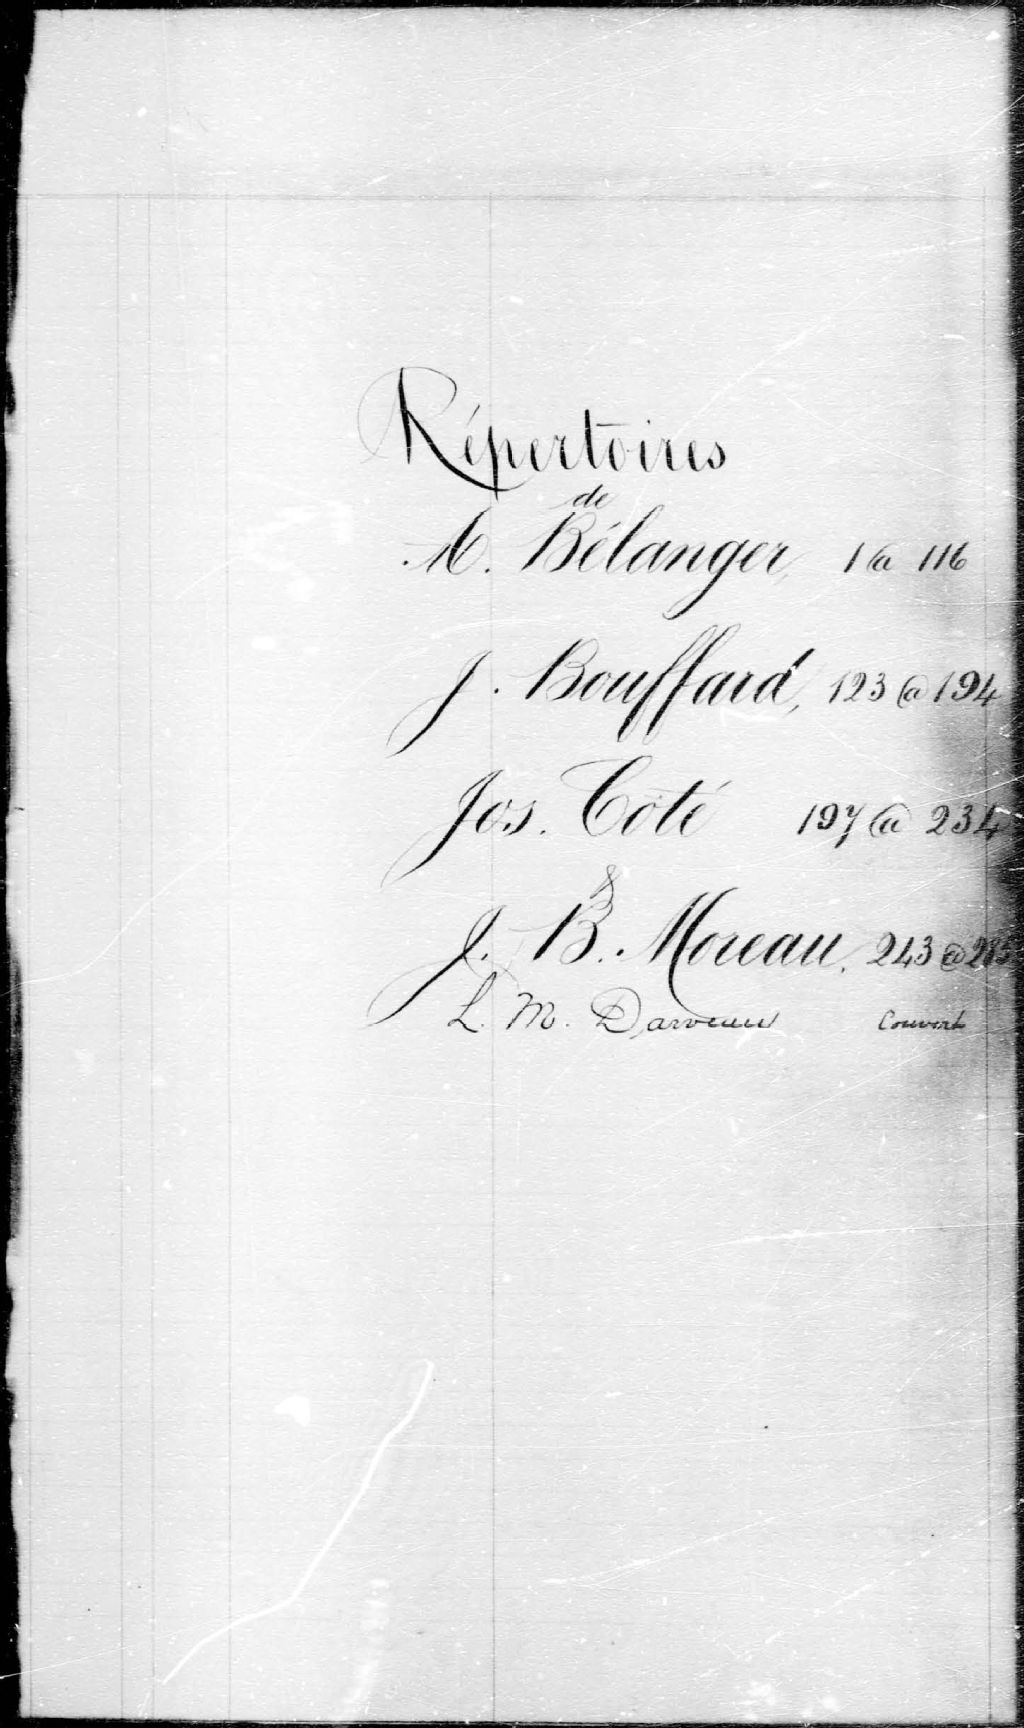 Répertoires
de
M. Bélanger, 1 @ 116
J. Bouffard, 123 @ 194
Jos. Coté 197 @ 234
&
J. B. Moreau, 243 @
L. M. Darveau Couvert